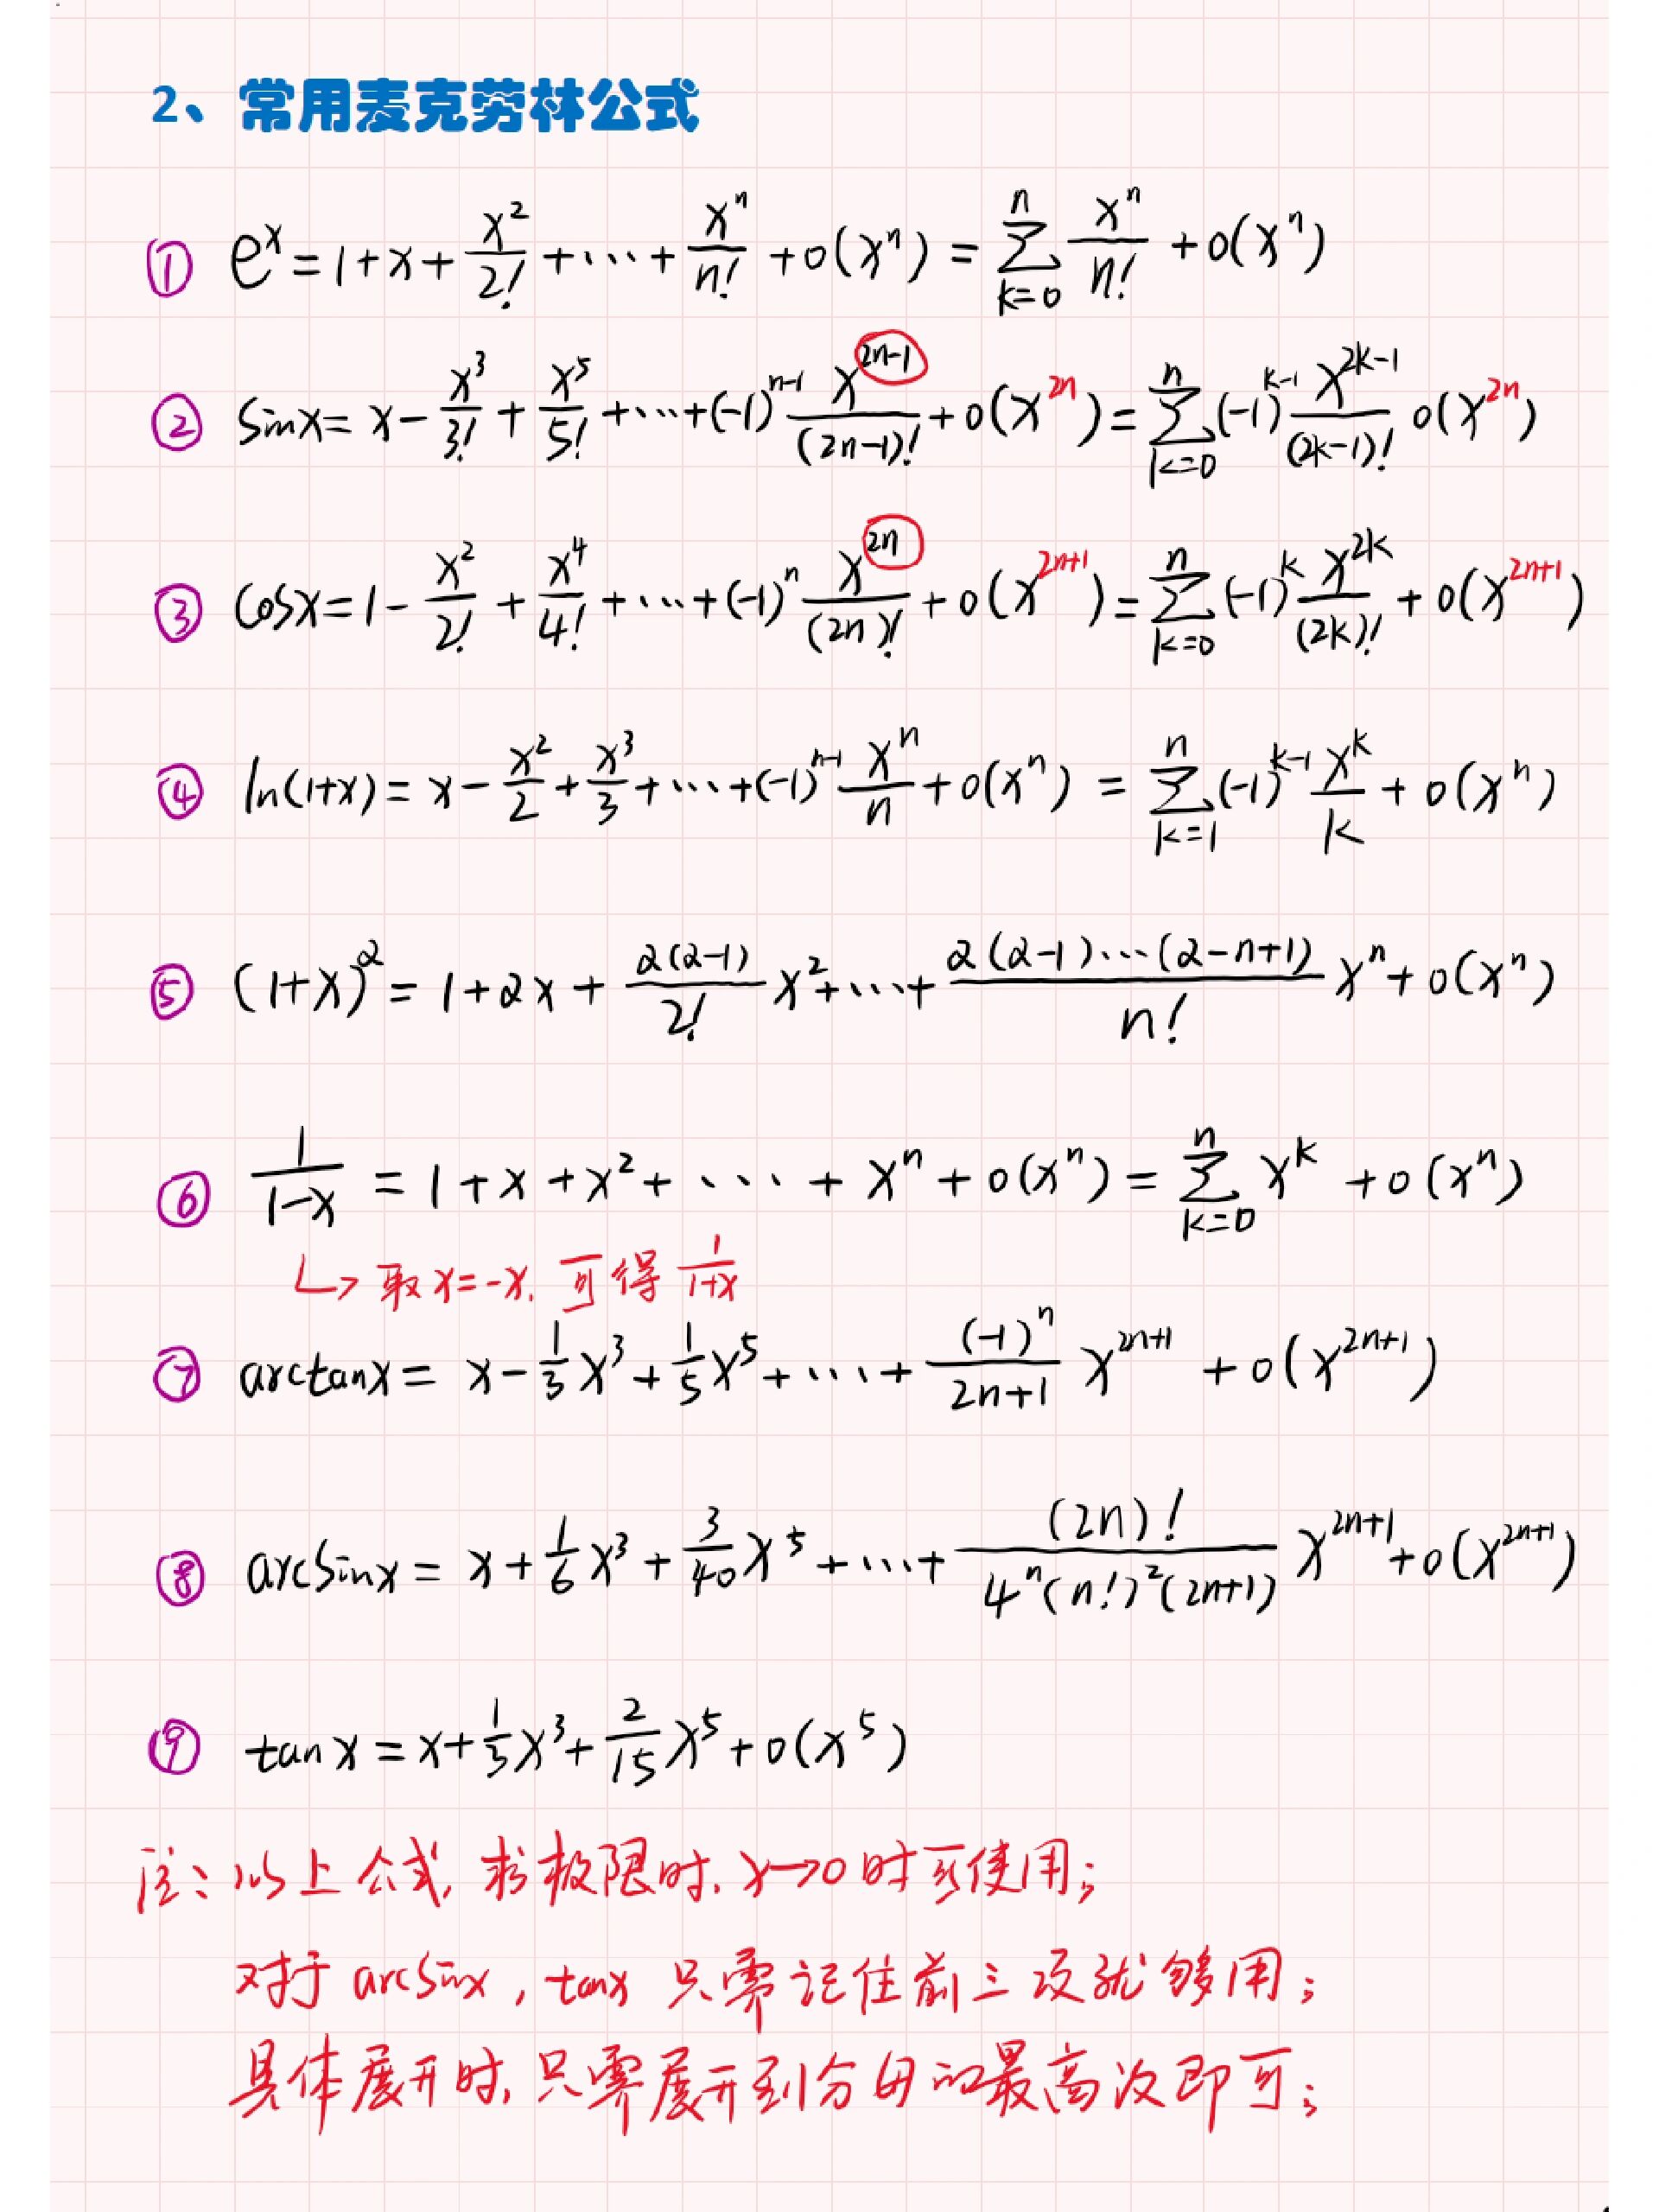 2、常用麦克劳林公式
① e^x = 1 + x + x^2/2! + ··· + x^n/n! + o(x^n) = ∑_{k=0}^{n} x^n/n! + o(x^n)
② sinx = x - x^3/3! + x^5/5! + ··· + (-1)^{n-1} x^{2n-1}/(2n-1)! + o(x^{2n}) = ∑_{k=0}^{n} (-1)^{k-1} x^{2k-1}/(2k-1)! o(x^{2n})
③ cosx = 1 - x^2/2! + x^4/4! + ··· + (-1)^n x^{2n}/(2n)! + o(x^{2n+1}) = ∑_{k=0}^{n} (-1)^k x^{2k}/(2k)! + o(x^{2n+1})
④ ln(1+x) = x - x^2/2 + x^3/3 + ··· + (-1)^{n-1} x^n/n + o(x^n) = ∑_{k=1}^{n} (-1)^{k-1} x^k/k + o(x^n)
⑤ (1+x)^α = 1 + αx + α(α-1)/2! x^2 + ··· + α(α-1)···(α-n+1)/n! x^n + o(x^n)
⑥ 1/(1-x) = 1 + x + x^2 + ··· + x^n + o(x^n) = ∑_{k=0}^{n} x^k + o(x^n)
↳ 取x=-x, 可得 1/(1+x)
⑦ arctanx = x - 1/3 x^3 + 1/5 x^5 + ··· + (-1)^n/(2n+1) x^{2n+1} + o(x^{2n+1})
⑧ arcsinx = x + 1/6 x^3 + 3/40 x^5 + ··· + (2n)!/(4^n(n!)^2(2n+1)) x^{2n+1} + o(x^{2n+1})
⑨ tanx = x + 1/3 x^3 + 2/15 x^5 + o(x^5)
注: 以上公式, 求极限时, x→0时可使用;
对于arcsinx, tanx 只需记住前三项就够用;
具体展开时, 只需展开到分母的最高次即可;